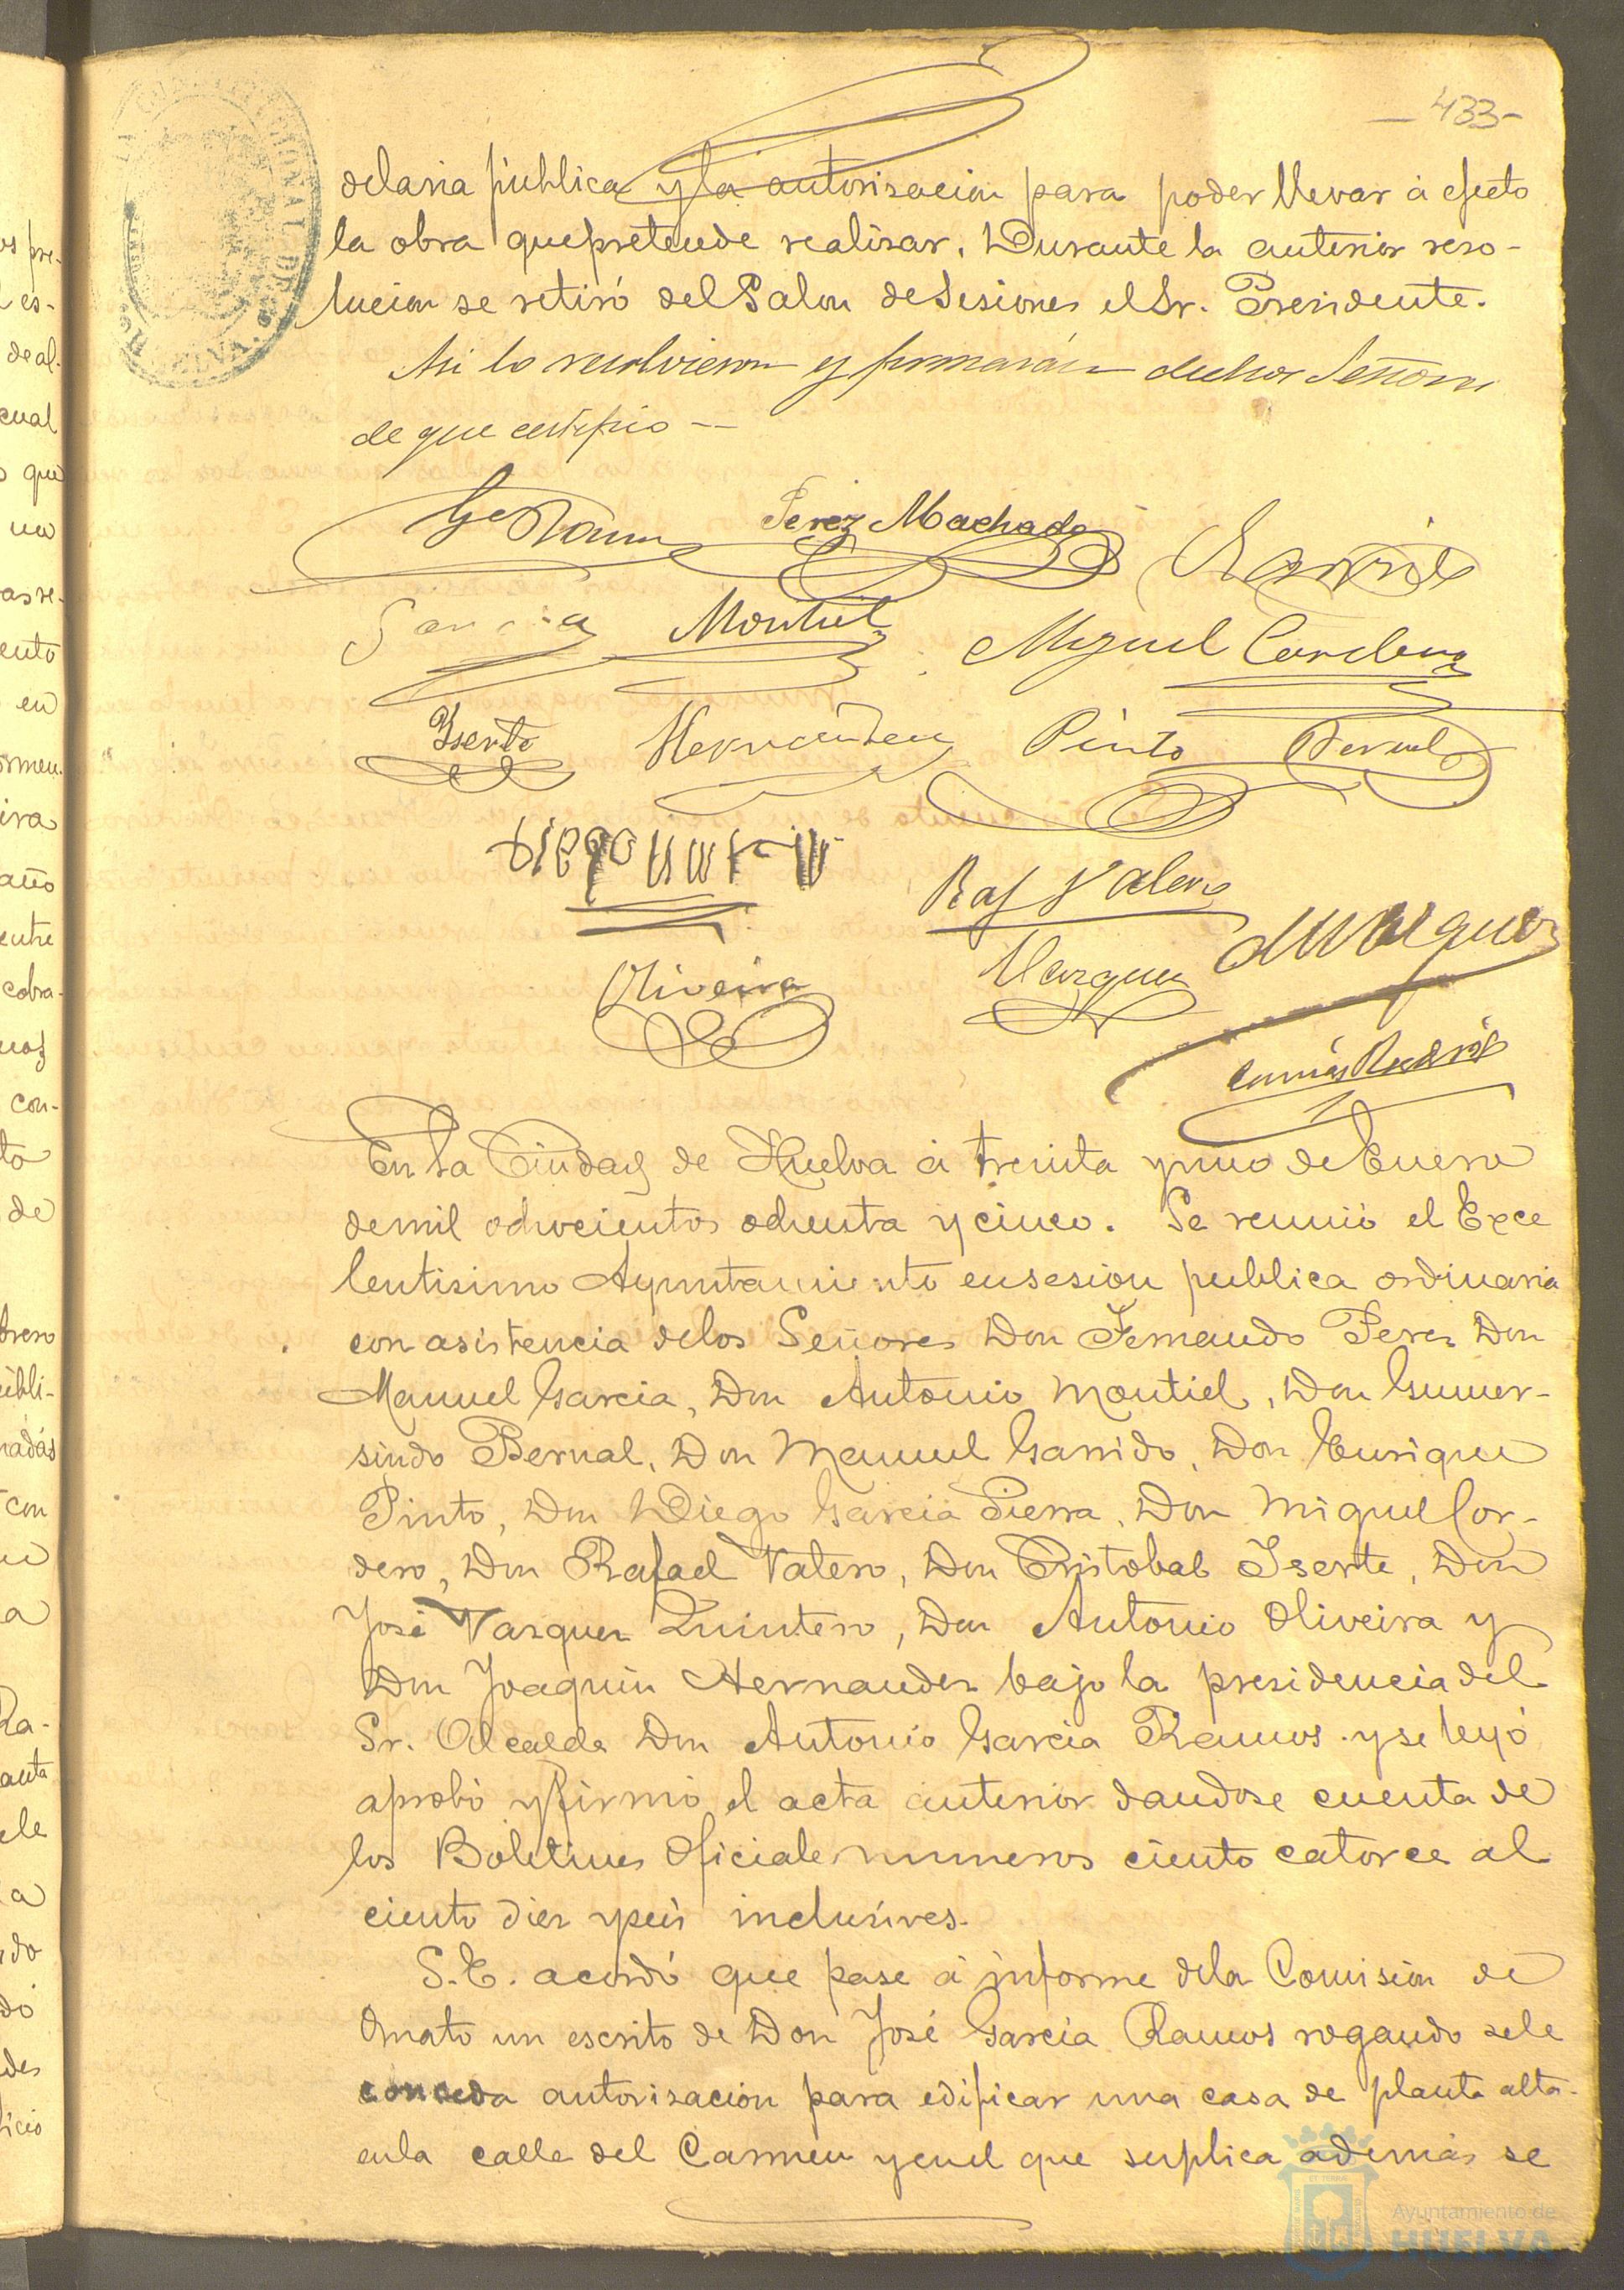 433-
dela via pública y la autorisacion para poder llevar á efecto
la obra que pretende realisar. Durante la anterior reso-
lucion se retiró del Salon de Sesiones el Sr. Presidente.
Asi lo resolvieron y firmarán dichos Señores
de que certifico --
Ga Ramos Perez Machado Garrido
Garcia Montiel Miguel Cordero
Yserte Hernandez Pinto Bernal
Diego
Raf Valero
Oliveira Vazquez
En la Ciudad de Huelva á treinta y uno de Enero
de mil ochocientos ochenta y cinco. Se reunió el Exce
lentisimo Ayuntamiento en sesion publica ordinaria
con asistencia de los Señores Don Fernando Perez Don
Manuel Garcia, Don Antonio Montiel, Don Gumer-
sindo Bernal, Don Manuel Garrido, Don Enrique
Pinto, Don Diego Garcia Sierra, Don Miguel Cor-
dero, Don Rafael Valero, Don Cristobal Iserte, Don
José Vazquez Quintero, Don Antonio Oliveira y
Don Joaquin Hernandez bajo la presidencia del
Sr. Alcalde Don Antonio Garcia Ramos y se leyó
aprobó y firmó el acta anterior dandose cuenta de
los Boletines Oficiales numeros ciento catorce al
ciento diez y seis inclusives.
S. E. acordó que pase á informe dela Comision de
Ornato un escrito de Don José Garcia Ramos rogando sele
conceda autorisacion para edificar una casa de planta alta
enla calle del Carmen y en el que suplica además se
Ayuntamiento de
HUELVA